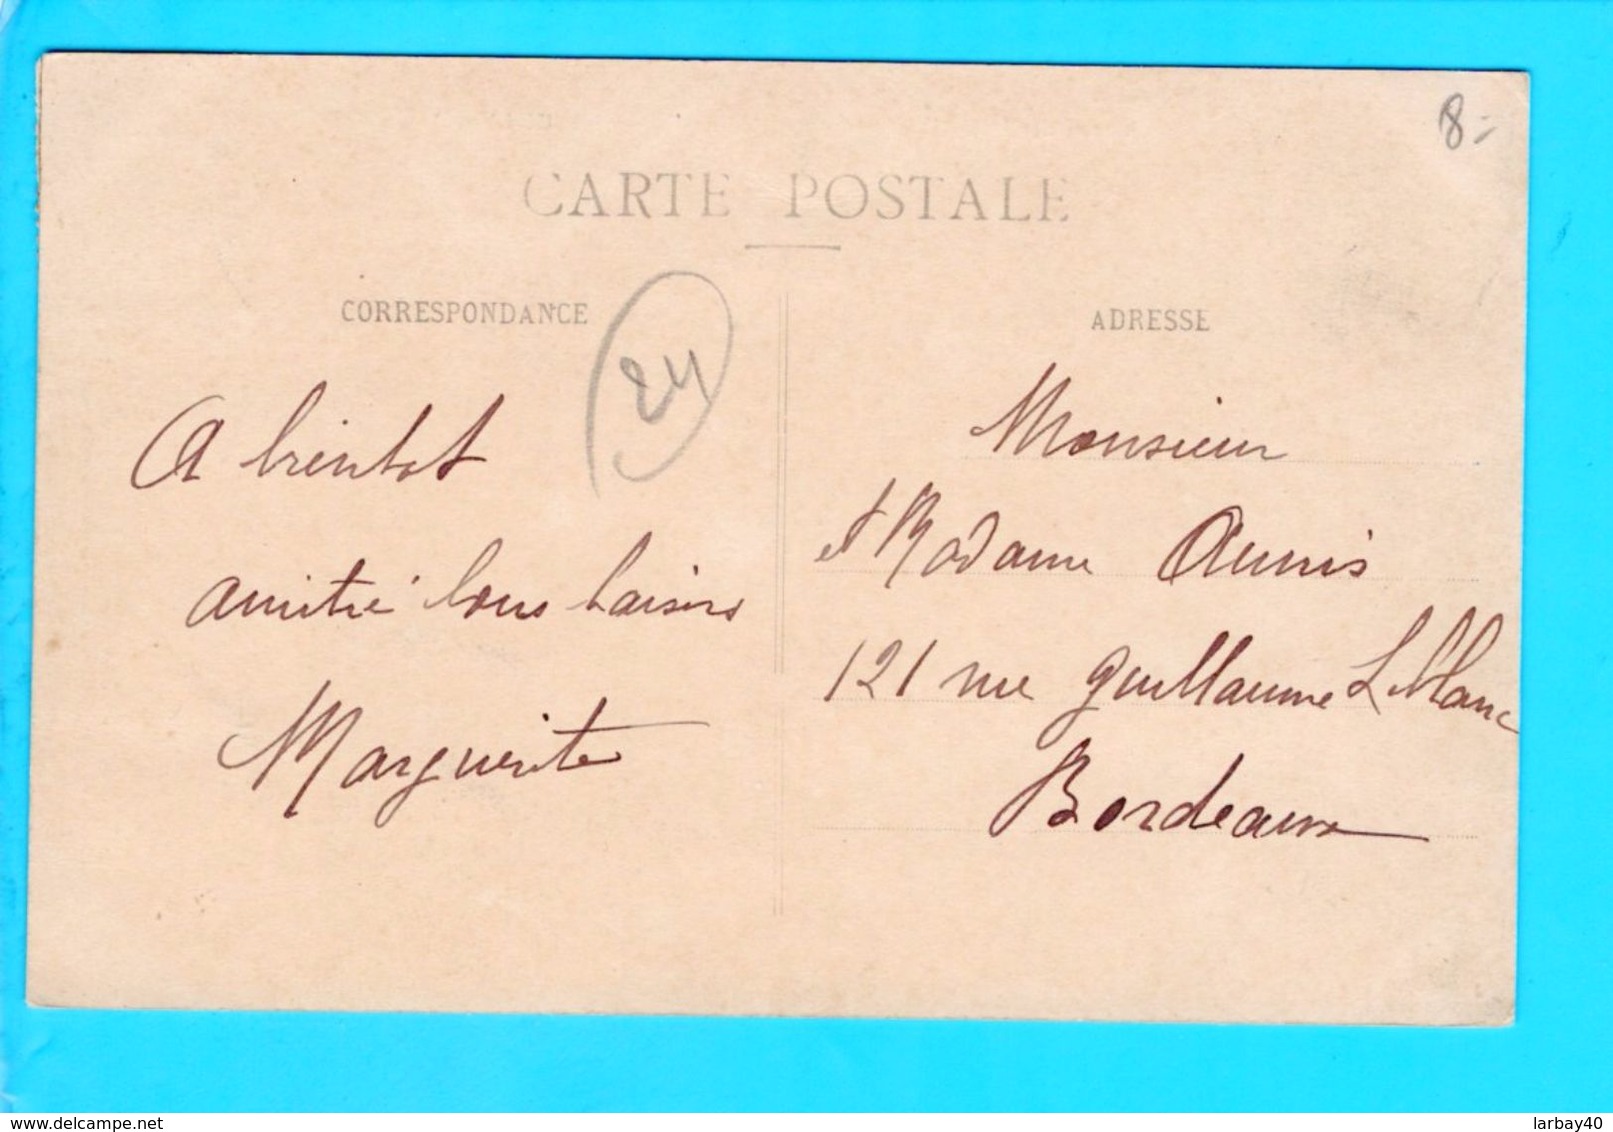 8-
CARTE POSTALE
CORRESPONDANCE
24
A bientot
amitié bons baisers
Marguerite
ADRESSE
Monsieur
et Madame Aunis
121 rue Guillaume L Blanc
Bordeaux
delcampe.net
larbay40